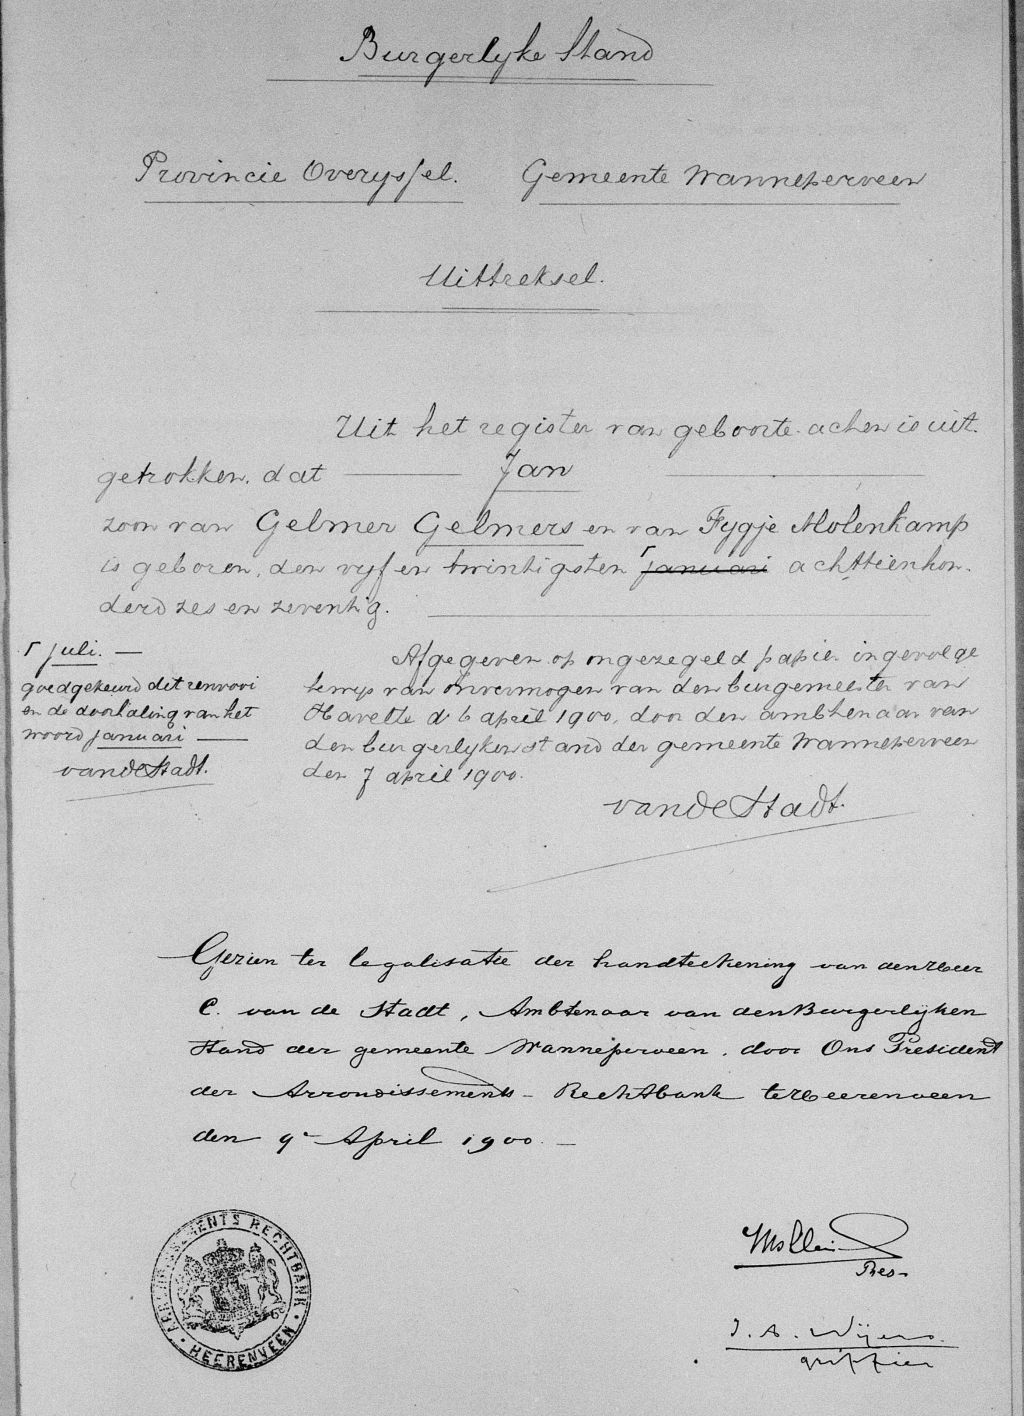 Burgerlyke Stand
Provincie Overyssel. Gemeente Wanneperveen
Uittreksel.
Uit het register van geboorte acten is uit.
getrokken, dat Jan
zoon van Gelmer Gelmers en van Fygje Molenkamp
is geboren, den vyf en twintigsten ⌈ januari achttienhon.
derd zes en zeventig.
⌈ juli. —
goedgekeurd dit renvooi
en de doorhaling van het
woord januari —
van de Stadt.
Afgegeven op ongezegeld papier ingevolge
bewys van onvermogen van den burgemeester van
Havelte d° 6 april 1900, door den ambtenaar van
den burgerlyken stand der gemeente Wanneperveen
den 7 april 1900.
van de Stadt.
Gezien ter legalisatie der handteekening van den Heer
C. van de Stadt, Ambtenaar van den Burgerlijken
Stand der gemeente Wanneperveen, door Ons President
der Arrondissements-Rechtbank te Heerenveen
den 9e April 1900. —
ARRONDISSEMENTS RECHTBANK
HEERENVEEN
Pres
J. A. Wijers.
griffier